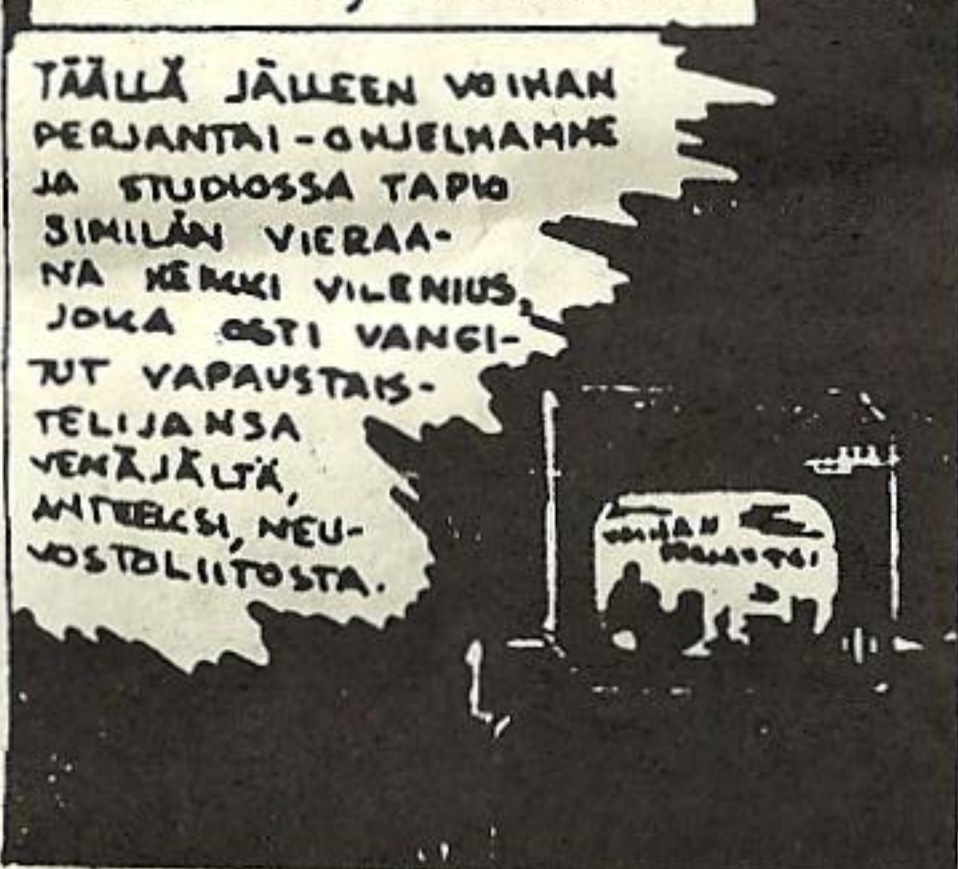 TÄÄLLÄ JÄLLEEN VOIHAN
PERJANTAI-OHJELMAMME
JA STUDIOSSA TAPIO
SIMILÄN VIERAA-
NA VILENIUS,
JOKA OSTI VANGI-
TUT VAPAUSTAIS-
TELIJANSA
VENÄJÄLTÄ,
ANTEEKSI, NEU-
VOSTOLIITOSTA.
VOIHAN